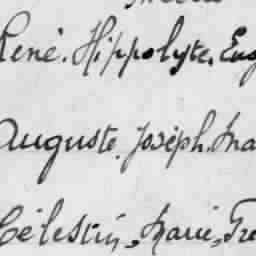 René. Hippolyte, Eug
Auguste. Joseph. Ma
Célestin, Marie, Fre